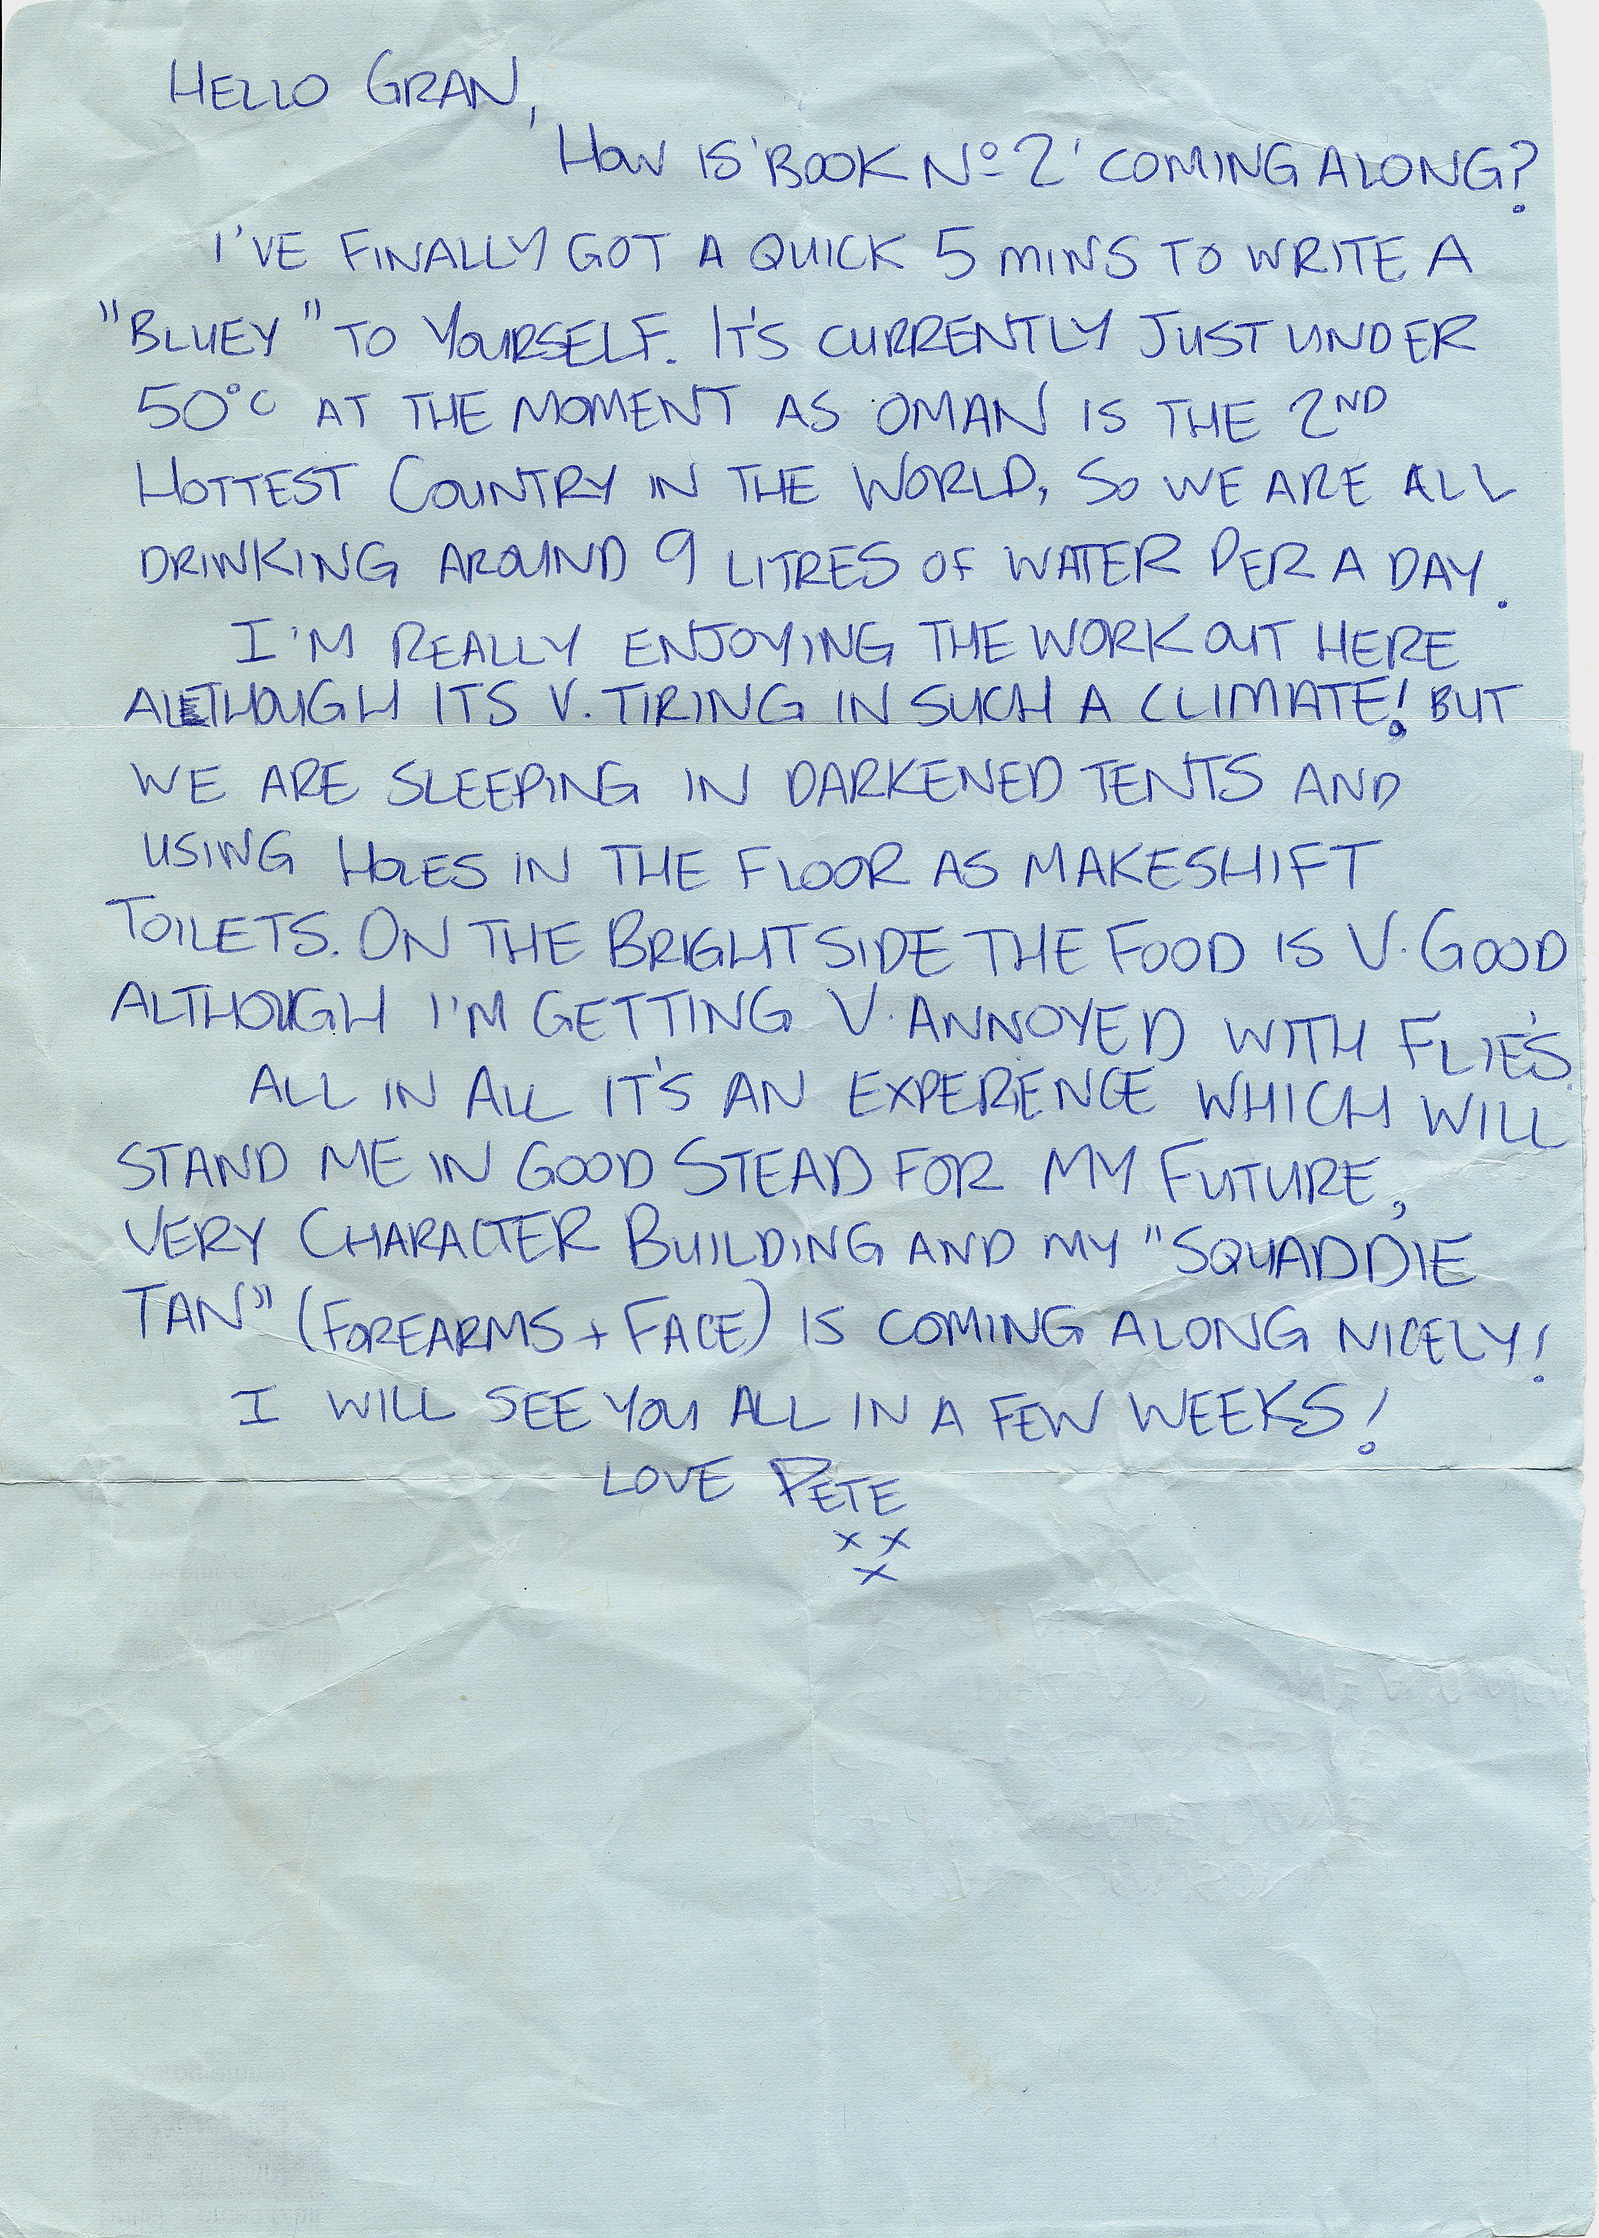 HELLO GRAN,
HOW IS 'BOOK Nº 2' COMING ALONG?
I'VE FINALLY GOT A QUICK 5 MINS TO WRITE A
"BLUEY" TO YOURSELF. IT'S CURRENTLY JUST UNDER
50°C AT THE MOMENT AS OMAN IS THE 2ND
HOTTEST COUNTRY IN THE WORLD, SO WE ARE ALL
DRINKING AROUND 9 LITRES OF WATER PER A DAY.
I'M REALLY ENJOYING THE WORK OUT HERE
ALTHOUGH ITS V. TIRING IN SUCH A CLIMATE! BUT
WE ARE SLEEPING IN DARKENED TENTS AND
USING HOLES IN THE FLOOR AS MAKESHIFT
TOILETS. ON THE BRIGHT SIDE THE FOOD IS V. GOOD
ALTHOUGH I'M GETTING V. ANNOYED WITH FLIE'S.
ALL IN ALL IT'S AN EXPERIENCE WHICH WILL
STAND ME IN GOOD STEAD FOR MY FUTURE,
VERY CHARACTER BUILDING AND MY "SQUADDIE
TAN" (FOREARMS + FACE) IS COMING ALONG NICELY!
I WILL SEE YOU ALL IN A FEW WEEKS!
LOVE PETE
x x
x